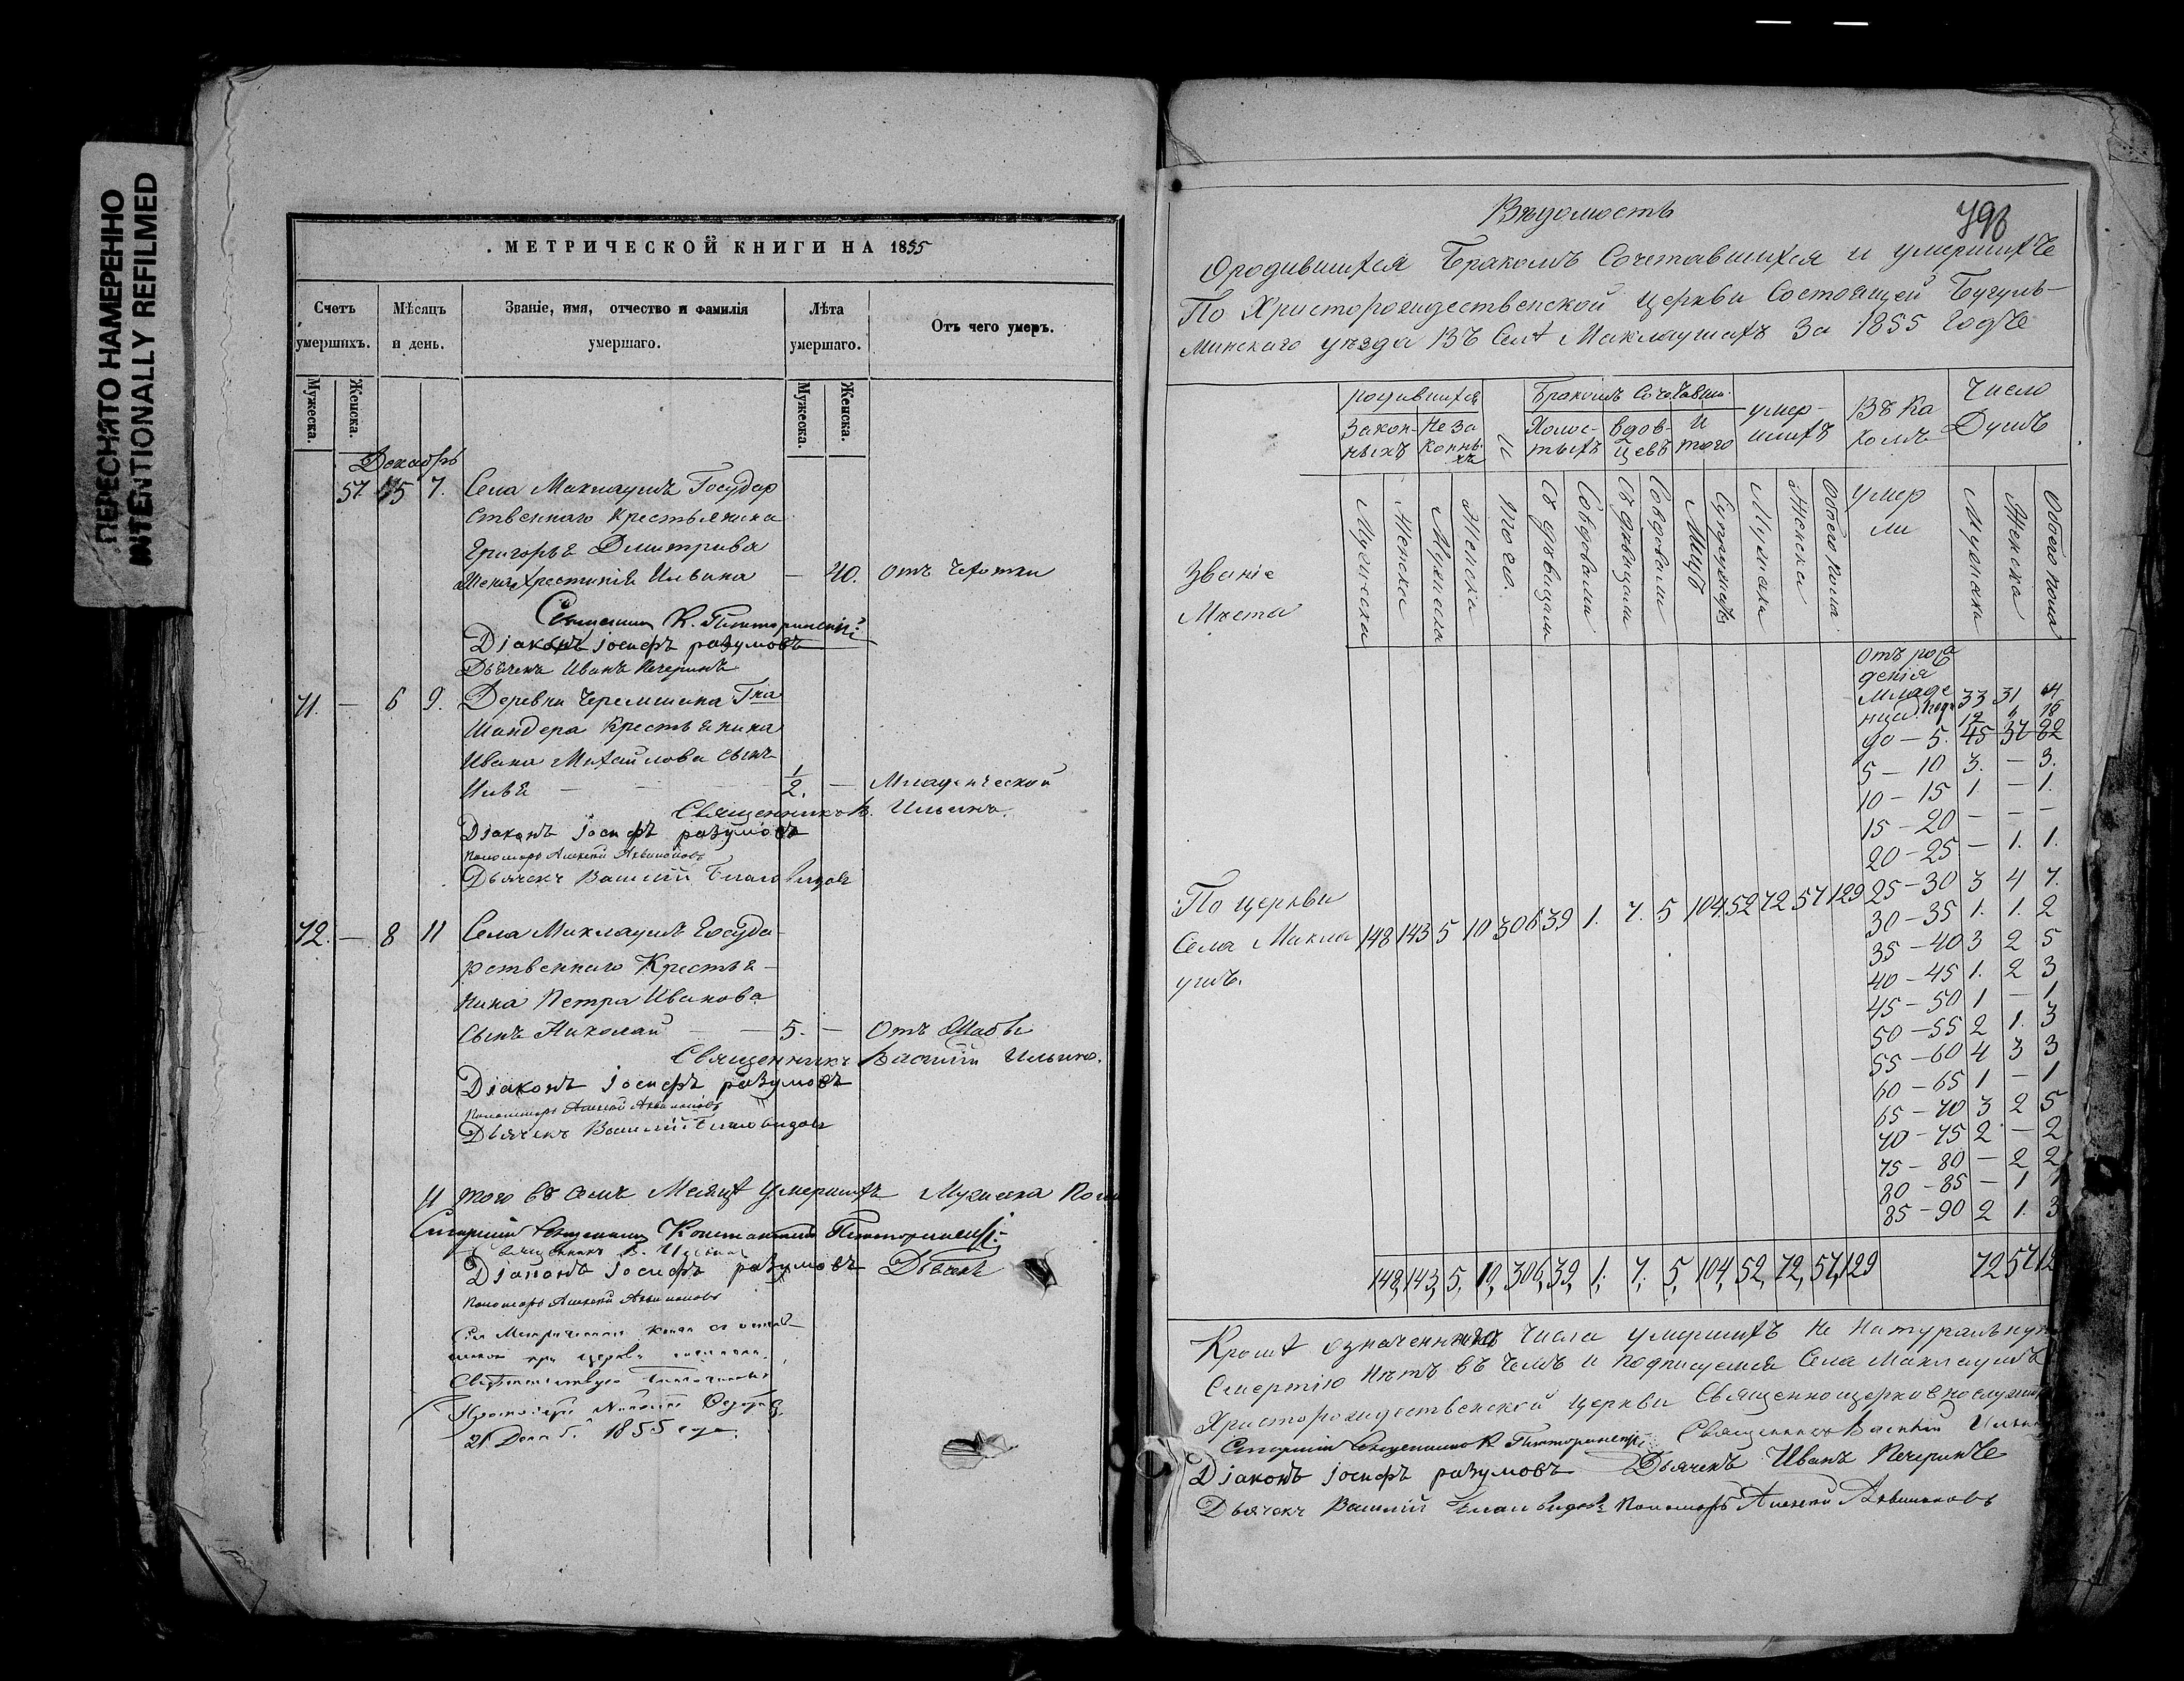 ПЕРЕСНЯТО НАМЕРЕННО
INTENTIONALLY REFILMED
МЕТРИЧЕСКОЙ КНИГИ НА 1855
Счетъ умершихъ. Мѣсяцъ и день. Званіе, имя, отчество и фамилія умершаго. Лѣта умершаго. Отъ чего умеръ.
Мужеска. Женска. Мужеска. Женска.
Декабрь
57. 5 7. Села Маклаушъ Государ
ственнаго Крестьянина
Григорья Дмитрива
жена Христинія Ильина — 40. отъ чахотки
Діаконъ Іосифъ разумовъ
Дьячекъ Иванъ Печеринъ
71. — 6 9. Деревни Черемшина Гна
Шандера Крестьянина
Ивана Михайлова сынъ
Илья — 1/2. — Младенческой
Священникъ В. Ильинъ.
Діаконъ Іосифъ разумовъ
Пономарь Алексѣй
Дьячекъ Василій Благовидовъ
72. — 8 11 Села Маклаушъ Госуда-
рственнаго Крестья-
нина Петра Иванова
сынъ Николай — 5. — Отъ Жабы
Священникъ Василій Ильинъ.
Діаконъ Іосифъ разумовъ
Пономарь Алексѣй
Дьячекъ Василій Благовидовъ
Итого въ семъ Месяцѣ умершихъ Мужеска пола
Старшій Священникъ Константинъ
Священникъ В. Ильинъ
Діаконъ Іосифъ разумовъ Дьячекъ
Пономарь Алексѣй
при церкви
21 Декаб. 1855 года.
Вѣдомость
Ородившихся Бракомъ Сочетавшихся и умершихъ
По Христорождественской церкви Состоящей Бугуль-
минскаго уѣзда Въ Селѣ Маклаушахъ За 1855 Годъ
родившихся И Бракомъ Сочетавши. умер- Въ Ка Число
Закон- Неза Холос- вдов- И шихъ комъ Душъ
ныхъ конны- тыхъ цевъ того
хъ
Званіе Мужеска Женска Мужеска Женска того. Съ дѣвицами Совдовами Съ дѣвицами Совдовами Мужъ Супружествъ Мужеска Женска Обоего пола умер Мужеска Женска Обоего пола
Мѣста ли
Отъ рож
денія
Младе 33 31 64
нца.
до — 5. 45 37 82
5 — 10 3. — 3.
10 — 15 1 — 1.
15 — 20 — — —
20 — 25 — 1. 1.
25 — 30 3 4 7.
30 — 35 1. 1. 2
35 — 40 3 2 5
40 — 45 1. 2 3
45 — 50 1 — 1
50 — 55 2 1. 3
55 — 60 4 3 3
60 — 65 1 — 1
65 — 70 3 2 5
70 — 75 2 — 2
75 — 80 — 2 2
80 — 85 — 1 1
85 — 90 2 1. 3
По церкви
Села Макла 148 143 5 10 306 39 1. 7. 5 104 52 72 57 129
ушъ.
148, 143, 5, 10, 306, 39, 1; 7; 5, 104, 52, 72, 57, 129 72 57 12
Кромѣ означеннаго Числа умершихъ не натуральную
Смертію Нѣтъ въ чемъ и подписуемся Села Маклаушъ
Христорождественской церкви Священноцерковнослужи
Старшій Священникъ К. Священникъ Василій Ильинъ
Діаконъ Іосифъ разумовъ Дьячекъ Иванъ Печеринъ
Дьячекъ Василій Благовидовъ Пономарь Алексѣй